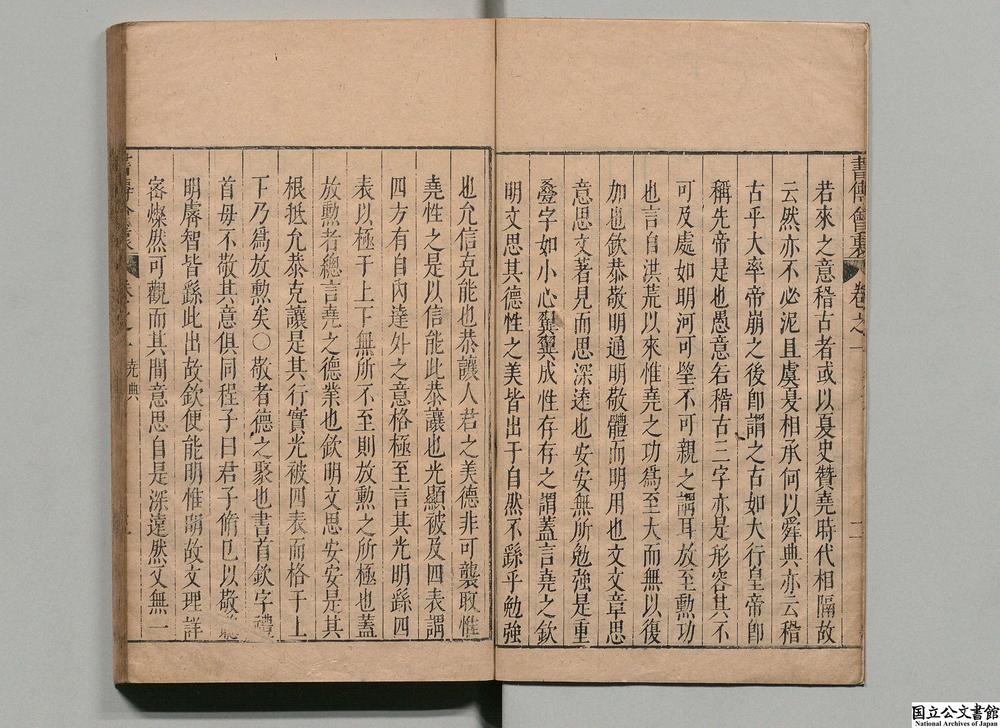 書傳會衷 卷之一
若來之意稽古者或以夏史贊堯時代相隔故
云然亦不必泥且虞夏相承何以舜典亦云稽
古乎大率帝崩之後即謂之古如大行皇帝即
稱先帝是也愚意若稽古三字亦是形容其不
可及處如明河可望不可親之謂耳放至勲功
也言自洪荒以來惟堯之功爲至大而無以復
加也欽恭敬明通明敬體而明用也文文章思
意思文著見而思深遠也安安無所勉強是重
疊字如小心翼翼成性存存之謂蓋言堯之欽
明文思其德性之美皆出于自然不繇乎勉強
也允信克能也恭讓人君之美德非可襲取惟
堯性之是以信能此恭讓也光顯被及四表謂
四方有自內達外之意格極至言其光明繇四
表以極于上下無所不至則放勲之所極也蓋
放勲者總言堯之德業也欽明文思安安是其
根抵允恭克讓是其行實光被四表而格于上
下乃爲放勲矣〇敬者德之聚也書首欽字禮
首毋不敬其意俱同程子曰君子脩己以敬聰
明睿智皆繇此出故欽便能明惟明故文理詳
密燦然可觀而其間意思自是深遠然又無一
書傳會衷 卷之一 堯典
国立公文書館
National Archives of Japan